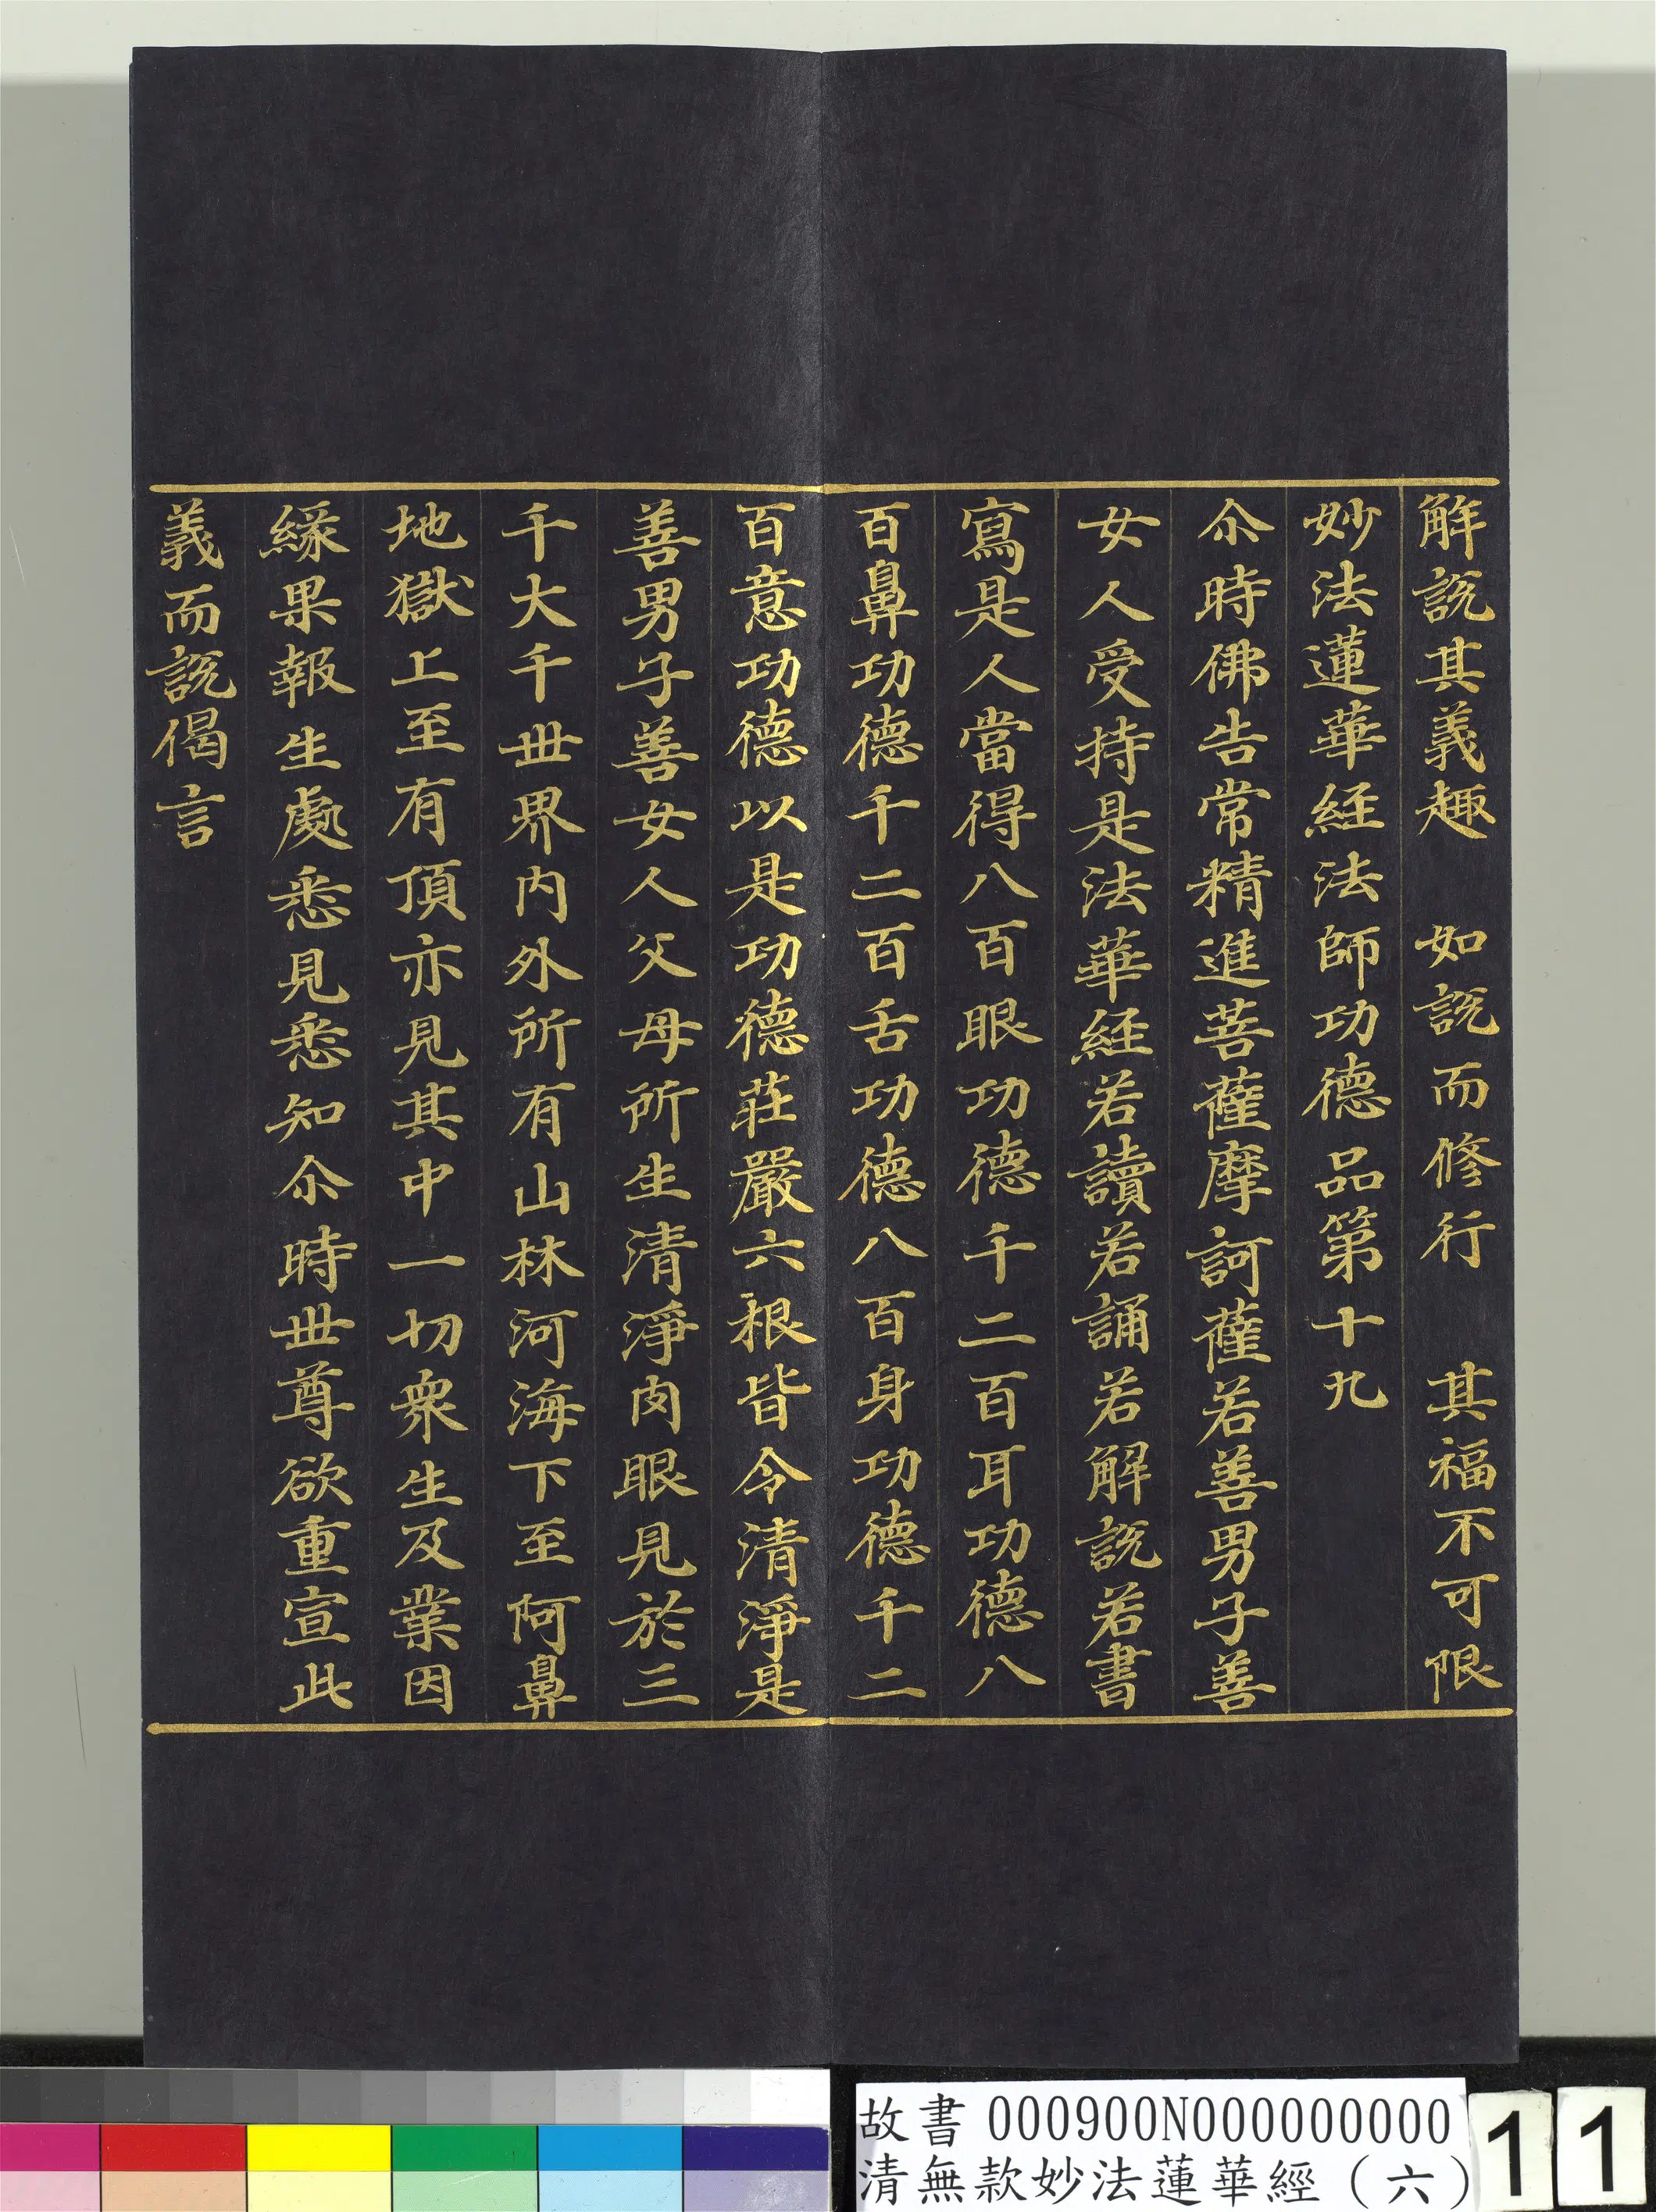 解說其義趣　如說而修行　其福不可限
妙法蓮華經法師功德品第十九
尒時佛告常精進菩薩摩訶薩若善男子善
女人受持是法華經若讀若誦若解說若書
寫是人當得八百眼功德千二百耳功德八
百鼻功德千二百舌功德八百身功德千二
百意功德以是功德莊嚴六根皆令清淨是
善男子善女人父母所生清淨肉眼見於三
千大千世界內外所有山林河海下至阿鼻
地獄上至有頂亦見其中一切衆生及業因
緣果報生處悉見悉知尒時世尊欲重宣此
義而說偈言
故書 000900N000000000
清無款妙法蓮華經（六）
11